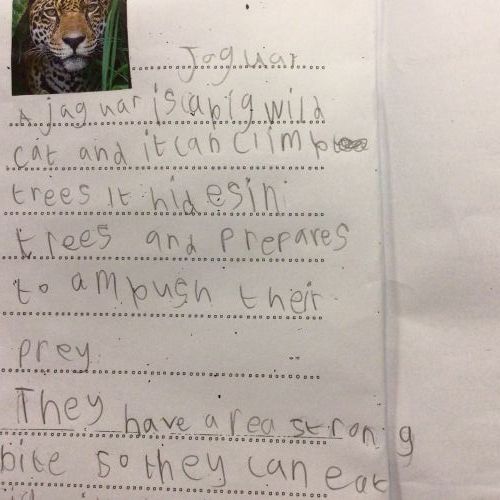 Jaguar
A jaguar is a big wild
cat and it can climp
trees It hides in
trees and prepares
to ambush their
prey.
They have a rea strong
bite so they can eat